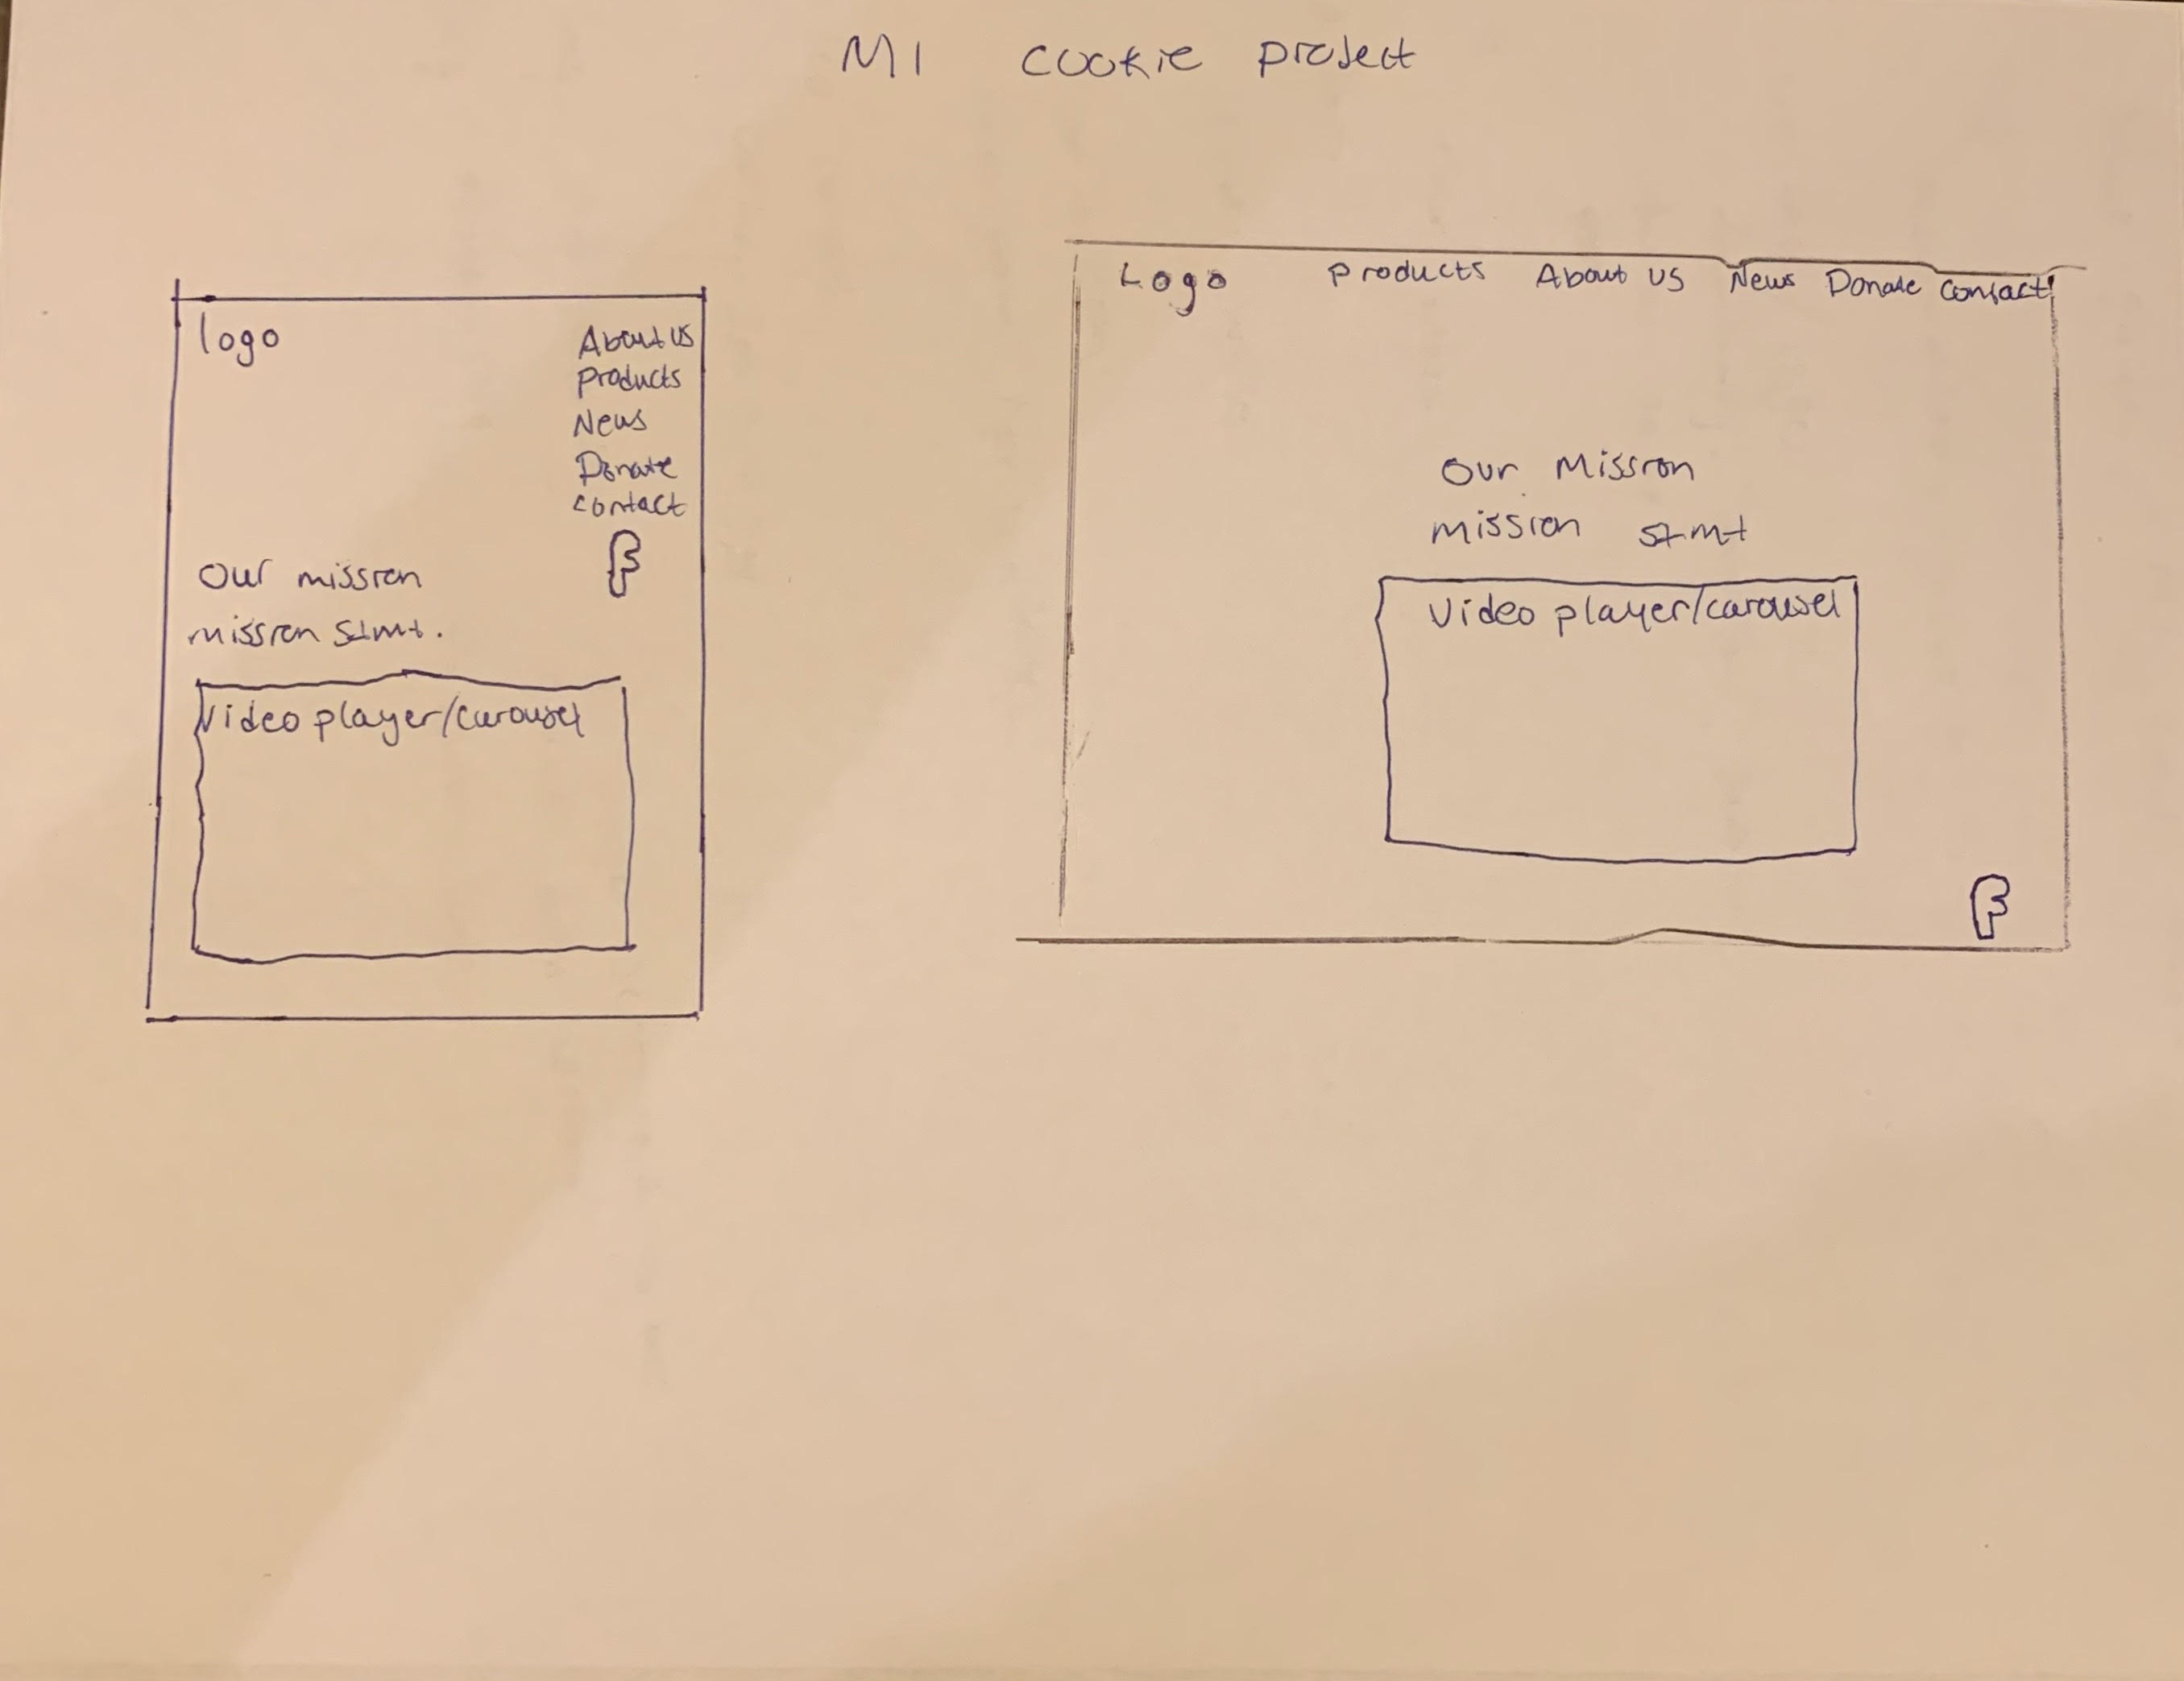 M1 cookie project
logo
About us
products
News
Donate
contact
f
Our mission
mission stmt.
Video player/carousel
Logo products About us News Donate contact
Our Mission
mission stmt
Video player/carousel
f